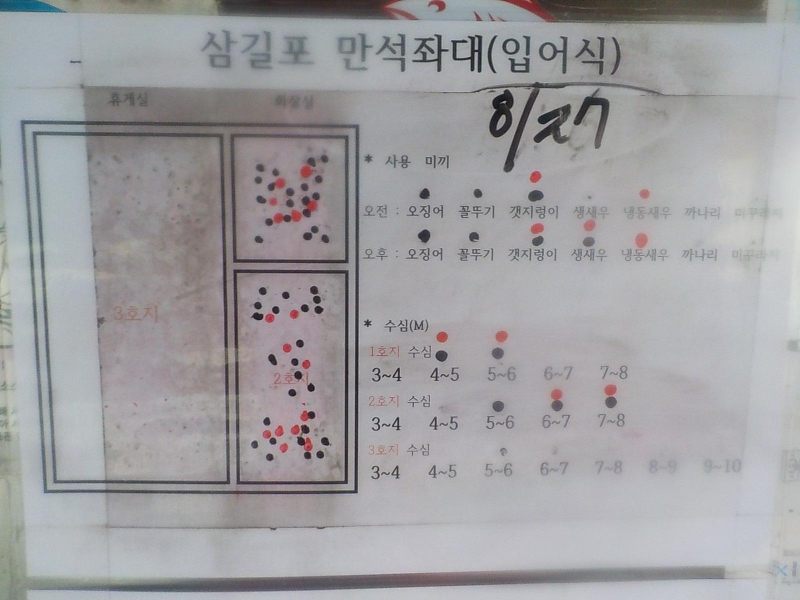 삼길포 만석좌대(입어식)
휴게실 화장실
8/27
* 사용 미끼
오전 : 오징어 꼴뚜기 갯지렁이 생새우 냉동새우 까나리 미꾸라지
오후 : 오징어 꼴뚜기 갯지렁이 생새우 냉동새우 까나리 미꾸라지
3호지
2호지
* 수심(M)
1호지 수심
3~4 4~5 5~6 6~7 7~8
2호지 수심
3~4 4~5 5~6 6~7 7~8
3호지 수심
3~4 4~5 5~6 6~7 7~8 8~9 9~10